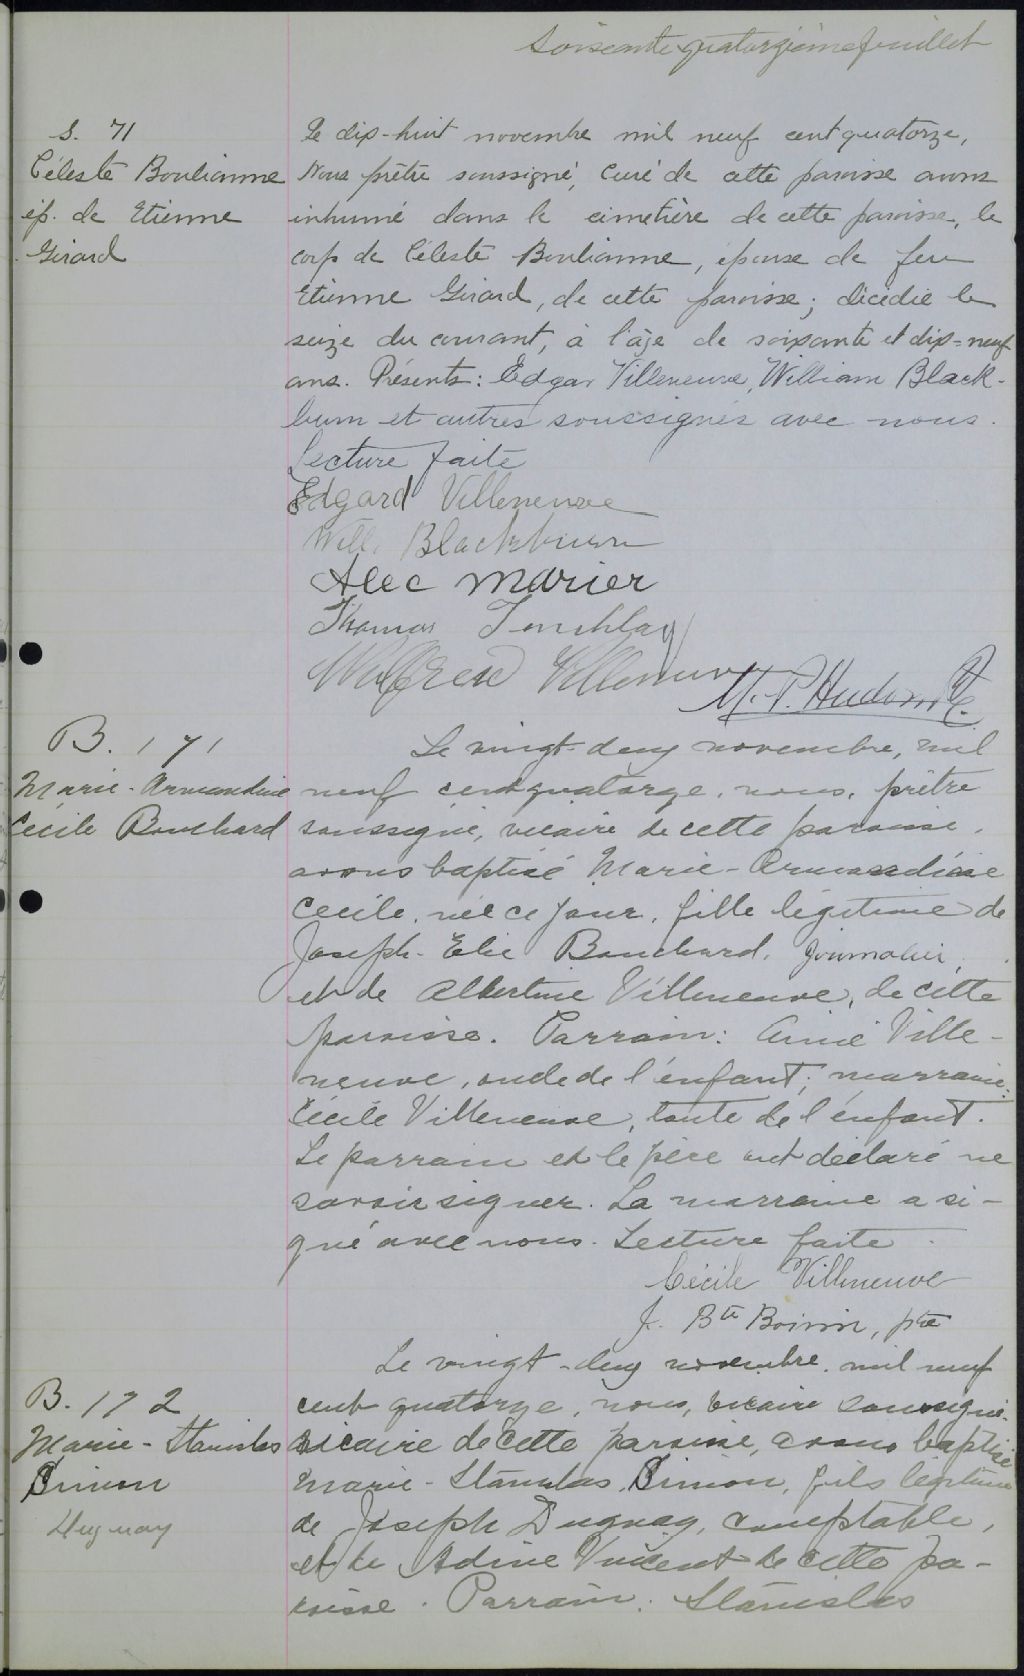 Soixante quatorzième feuillet
S. 71
Céleste Boulianne
ép. de Etienne
Girard
Le dix-huit novembre mil neuf cent quatorze,
Nous prêtre soussigné, Curé de cette paroisse avons
inhumé dans le cimetière de cette paroisse, le
corp de Céleste Boulianne, épouse de feu
Etienne Girard, de cette paroisse; décédée le
seize du courant, à l'âge de soixante et dix-neuf
ans. Présents: Edgar Villeneuve, William Black-
burn et autres soussignés avec nous.
Lecture faite
Edgard Villeneuve
Will. Blackburn
Alec Marier
Thomas Tremblay
Wilfrid Villeneuve
M. P. Hudon Ptre
B. 171
Marie-Armandine
Cécile Bouchard
Le vingt-deux novembre, mil
neuf cent quatorze, nous, prêtre
soussigné, vicaire de cette paroisse,
avons baptisé Marie-Armandine
Cécile, née ce jour, fille légitime de
Joseph-Elie Bouchard, journalier,
et de Albertine Villeneuve, de cette
paroisse. Parrain: Aimé Ville-
neuve, oncle de l'enfant; marraine:
Cécile Villeneuve, tante de l'enfant.
Le parrain et le père ont déclaré ne
savoir signer. La marraine a si-
gné avec nous. Lecture faite.
Cécile Villeneuve
J. Bte Boivin, ptre
B. 172
Marie-Stanislas
Simon
Duguay
Le vingt-deux novembre, mil neuf
cent quatorze, nous, vicaire soussigné,
vicaire de cette paroisse, avons baptisé
Marie-Stanislas, Simon, fils légitime
de Joseph Duguay, comptable,
et de Adine Vincent de cette pa-
roisse. Parrain: Stanislas